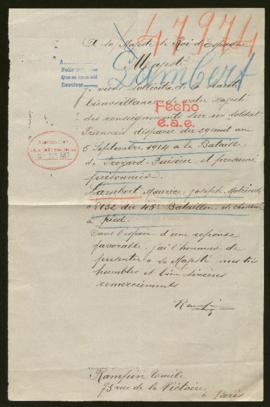 47974
Lambert
A Sa Majesté le Roi d'Espagne
Majesté
Je viens solliciter de la haute
bienveillance de votre Majesté
des renseignements sur un soldat
Français disparu du 29 août au
5 Septembre 1914 à la Bataille
de Proyart
et présumé
prisonnier
Fecho
e.a.e.
Lambert Maurice, Joseph
du 45e Bataillon de chasseurs
à pied
Dans l'espoir d'une réponse
favorable j'ai l'honneur de
présenter à Sa Majesté mes très
humbles et bien sincères
remerciements
rue de la Victoire
à Paris